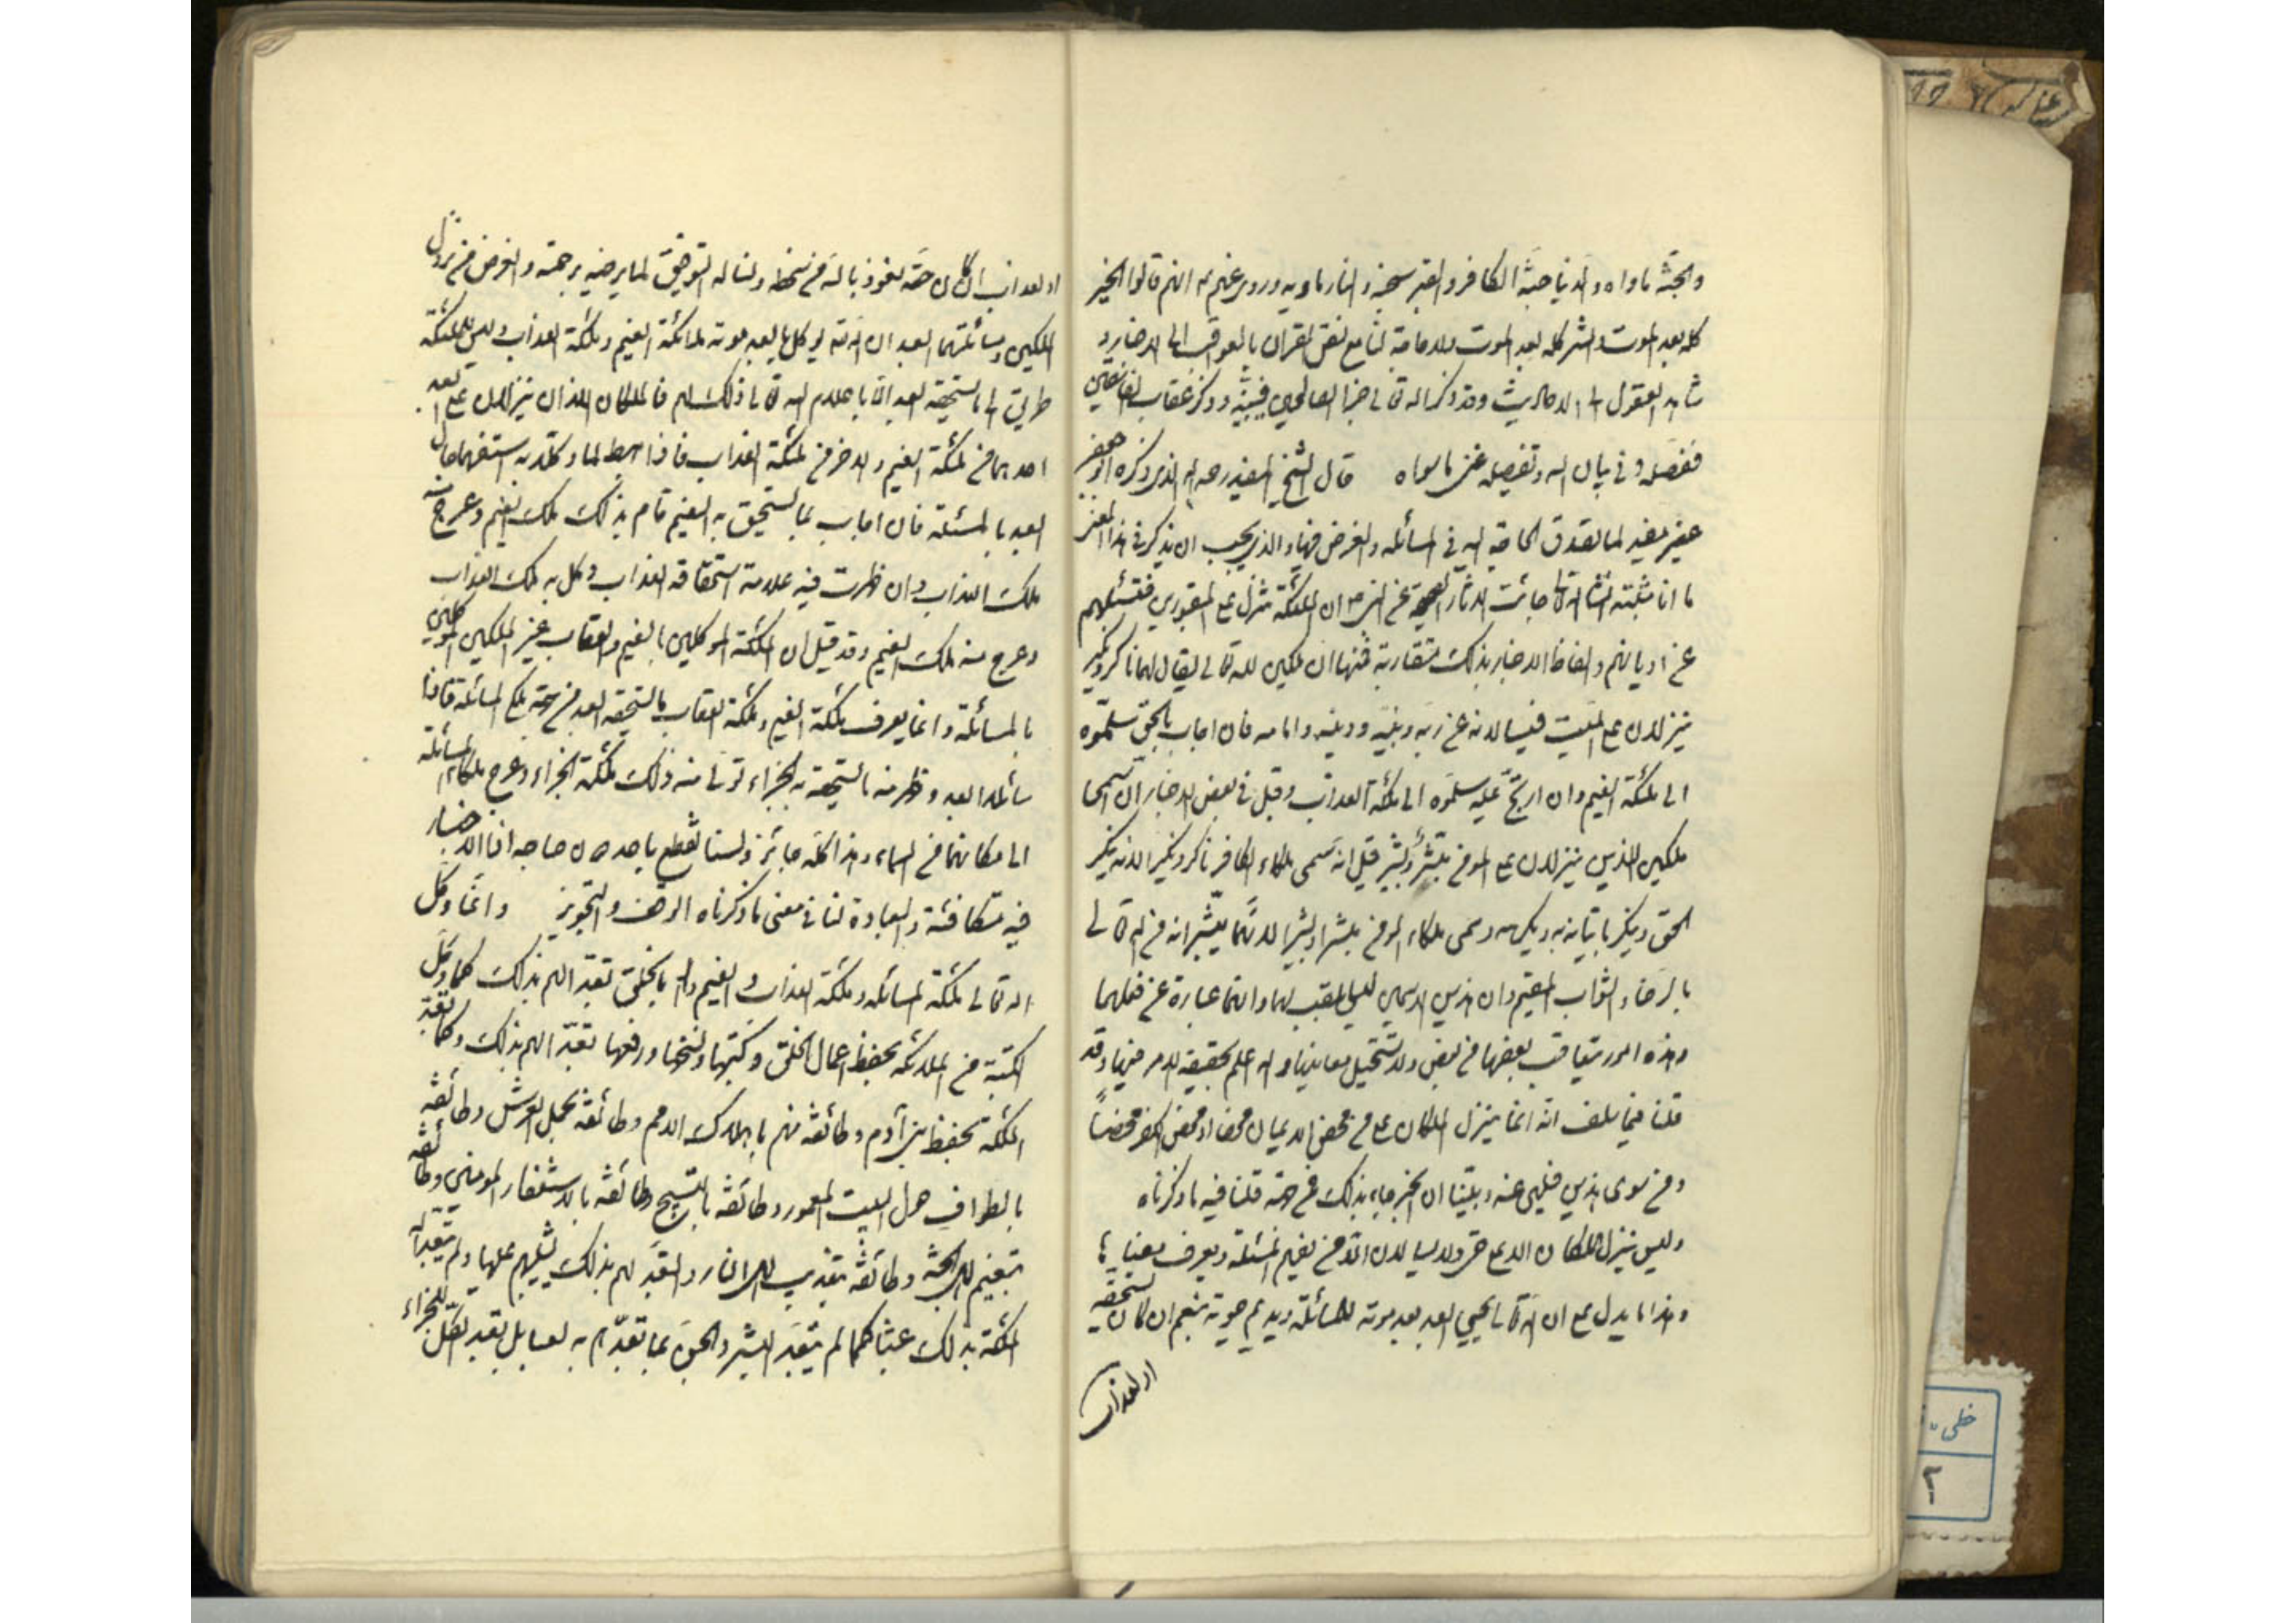 والجنّة ماواه والدنيا جنّة الكافر والقبر سجنه والنار ماويه وروى عنهم ع انهم قالوا الخير
كله بعد الموت والشر كله بعد الموت ولا حاجة بنا مع نص القران بالعواقب الى الاخبار و
شاهد العقول الى الاحاديث وقد ذكر الله تعالى جزا الصالحين فبيّنه وذكر عقاب الفاسقين
ففصّله وفى بيان الله وتفصيله غنى ماسواه قال الشيخ المفيد رحمه الله الذى ذكره ابو جعفر
غير مفيد لما تصدق الحاجة اليه فى المسائله والغرض فيها والذى يجب ان يذكر فى هذا المعنى
ما انا مثبته انشا الله تعالى جائت الاثار الصحيحة عن النبى ص ان الملائكة تنزل على المقبورين فتسئلهم
عن اديانهم والفاظ الاخبار بذلك متقاربة فمنها ان ملكين لله تعالى يقال لهما ناكر ونكير
ينزلان على الميت فيسالانه عن ربه ونبيّه ودينه وامامه فان اجاب بالحق سلّموه
الى ملئكة النعيم وان ارتجّ عليه سلّموه الى ملئكة العذاب وقيل فى بعض الاخبار انّ اسمى
ملكين الذين ينزلان على المومن مبشّر وبشير قيل انه سمى ملكا الكافر ناكر ونكير الانه ينكر
الحق وينكر ما ياتيانه به ويكرهه وسمى ملكاء المومن مبشرا وبشيرا لانّهما يبشّرانه من الله تعالى
بالرضاء والثواب المقيم وان هذين الاسمين ليس بلقب لهما وانهما عبارة عن فعلهما
وهذه امور يتقاقب بعضها من بعض ولا تستحيل معانيها والله اعلم بحقيقة الامر فيها وقد
قلنا فيما سلف انه انما ينزل الملكان على من محض الايمان محضا او محض الكفر محضاً
ومن سوى هذين فيلهى عنه وبيّنا ان الخبر جاء بذلك فمن جهته قلنا فيه ما ذكرناه
وليس ينزل الملكان الا على حىّ ولا يسالان الّا من يفهم المسئلة ويعرف معناها
وهذا ما يدل على ان الله تعالى يحيي العبد بعد موته للمسائلة ويديم حيوته بنعيم ان كان يستحقه
او العذاب
او لعذاب ان كان حقّه نعوذ بالله من سخطه ونساله التوفيق لما يرضيه برحمته والغرض من نزول
الملكين ومسائلتهما العبد ان الله تعالى يوكل بالعبد بعد موته ملائكة النعيم وملئكة العذاب وليس للملئكة
طريق الى ما يستحقه العبد الّا باعلام الله تعالى ذلك لهم فالملكان اللذان ينزلان على العبد
احدهما من ملئكة النعيم والاخر من ملئكة العذاب فاذا هبطا لما وكّلا به استفهما حال
العبد بالمسئلة فان اجاب بما يستحق به النعيم قام بذلك ملك النعيم وعرج عنه
ملك العذاب وان ظهرت فيه علامة استحقاقه العذاب وكل به ملك العذاب
وعرج عنه ملك النعيم وقد قيل ان الملئكة الموكلين بالنعيم والعقاب غير الملكين الموكلين
بالمسائلة وانما يعرف ملئكة النعيم وملئكة العقاب ما يستحقه العبد من جهة ملكى المسائلة فاذا
سائلا العبد وظهر منه ما يستحق به الجزاء تولى منه ذلك ملئكة الجزاء وعرج ملكا المسائلة
الى مكانهما من السماء وهذا كله جائز ولسنا نقطع باحد دون صاحبه اذ الاخبار
فيه متكافئة والعبادة لنا فى معنى ما ذكرناه الوقف والتجويز وانما وكّل
الله تعالى ملئكة المسائله وملئكة العذاب والنعيم بالخلق تعبّدا لهم بذلك كما وكّل
الكتبة من الملائكه بحفظ اعمال الخلق وكتبها ونسخها ورفعها تعبّدا لهم بذلك وكما تعبّد
الملئكة بحفظ بنى آدم وطائفة منهم باهلاك الامم وطائفة بحمل العرش وطائفة
بالطواف حول البيت المعمور وطائفة بالتسبيح وطائفة بالاستغفار للمومنين وطائفة
بتنعيم اهل الجنّة وطائفة بتعذيب اهل النار والتعبّد لهم بذلك ليثيبهم عليها ولم يتعبّد الله
الملئكة بذلك عبثا كما لم يتعبّد البشر والجنّ بما تعبّدهم به لعبا بل تعبد الكلّ للجزاء